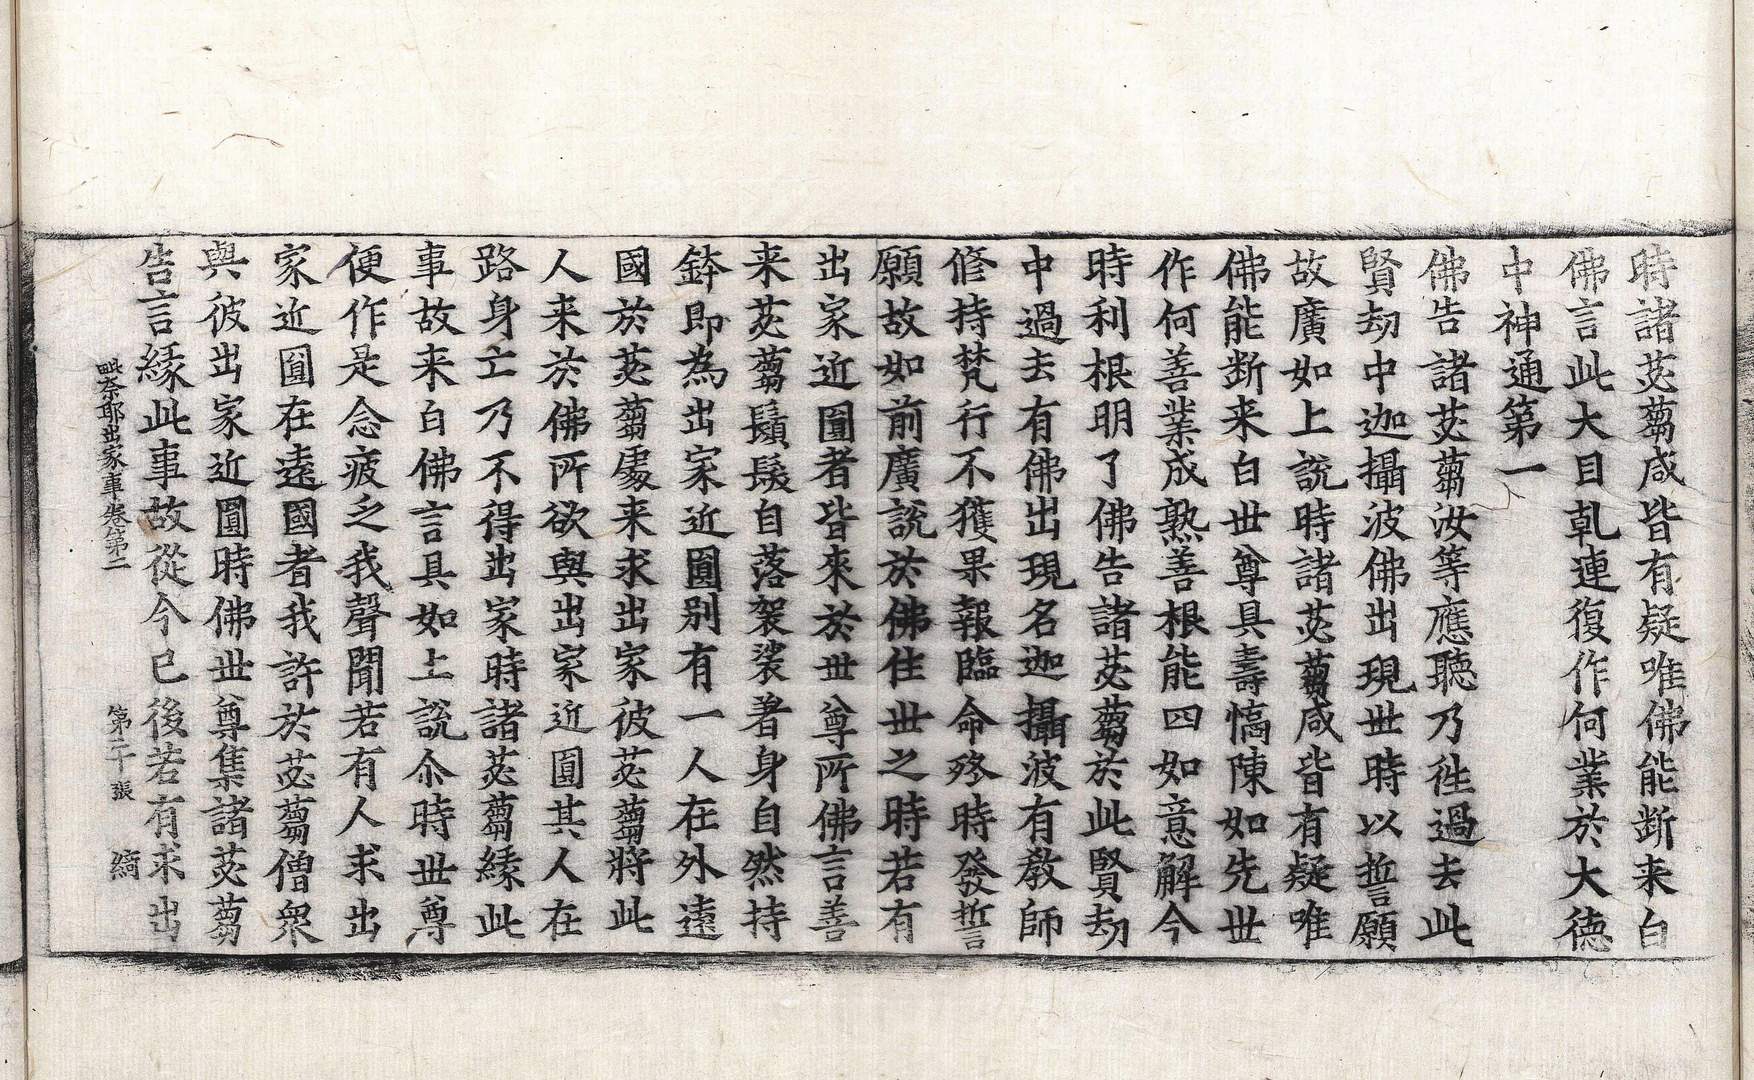 時諸苾蒭咸皆有疑唯佛能断来白
佛言此大目乹連復作何業於大德
中神通第一
佛告諸苾蒭汝等應聽乃徃過去此
賢劫中迦攝波佛出現世時以誓願
故廣如上說時諸苾蒭咸皆有疑唯
佛能断来白世尊具壽憍陳如先世
作何善業成熟善根能四如意解今
時利根明了佛告諸苾蒭於此賢劫
中過去有佛出現名迦攝波有教師
修持梵行不獲果報臨命終時發誓
願故如前廣說於佛住世之時若有
出家近圓者皆來於世尊所佛言善
来苾蒭鬚髮自落袈裟著身自然持
鉢即為出家近圓别有一人在外遠
國於苾蒭處来求出家彼苾蒭將此
人来於佛所欲與出家近圓其人在
路身亡乃不得出家時諸苾蒭緣此
事故来白佛言具如上說尒時世尊
便作是念疲乏我聲聞若有人求出
家近圓在遠國者我許於苾蒭僧衆
與彼出家近圓時佛世尊集諸苾蒭
告言緣此事故從今已後若有求出
毗奈耶出家事卷第二 第二十張 綺